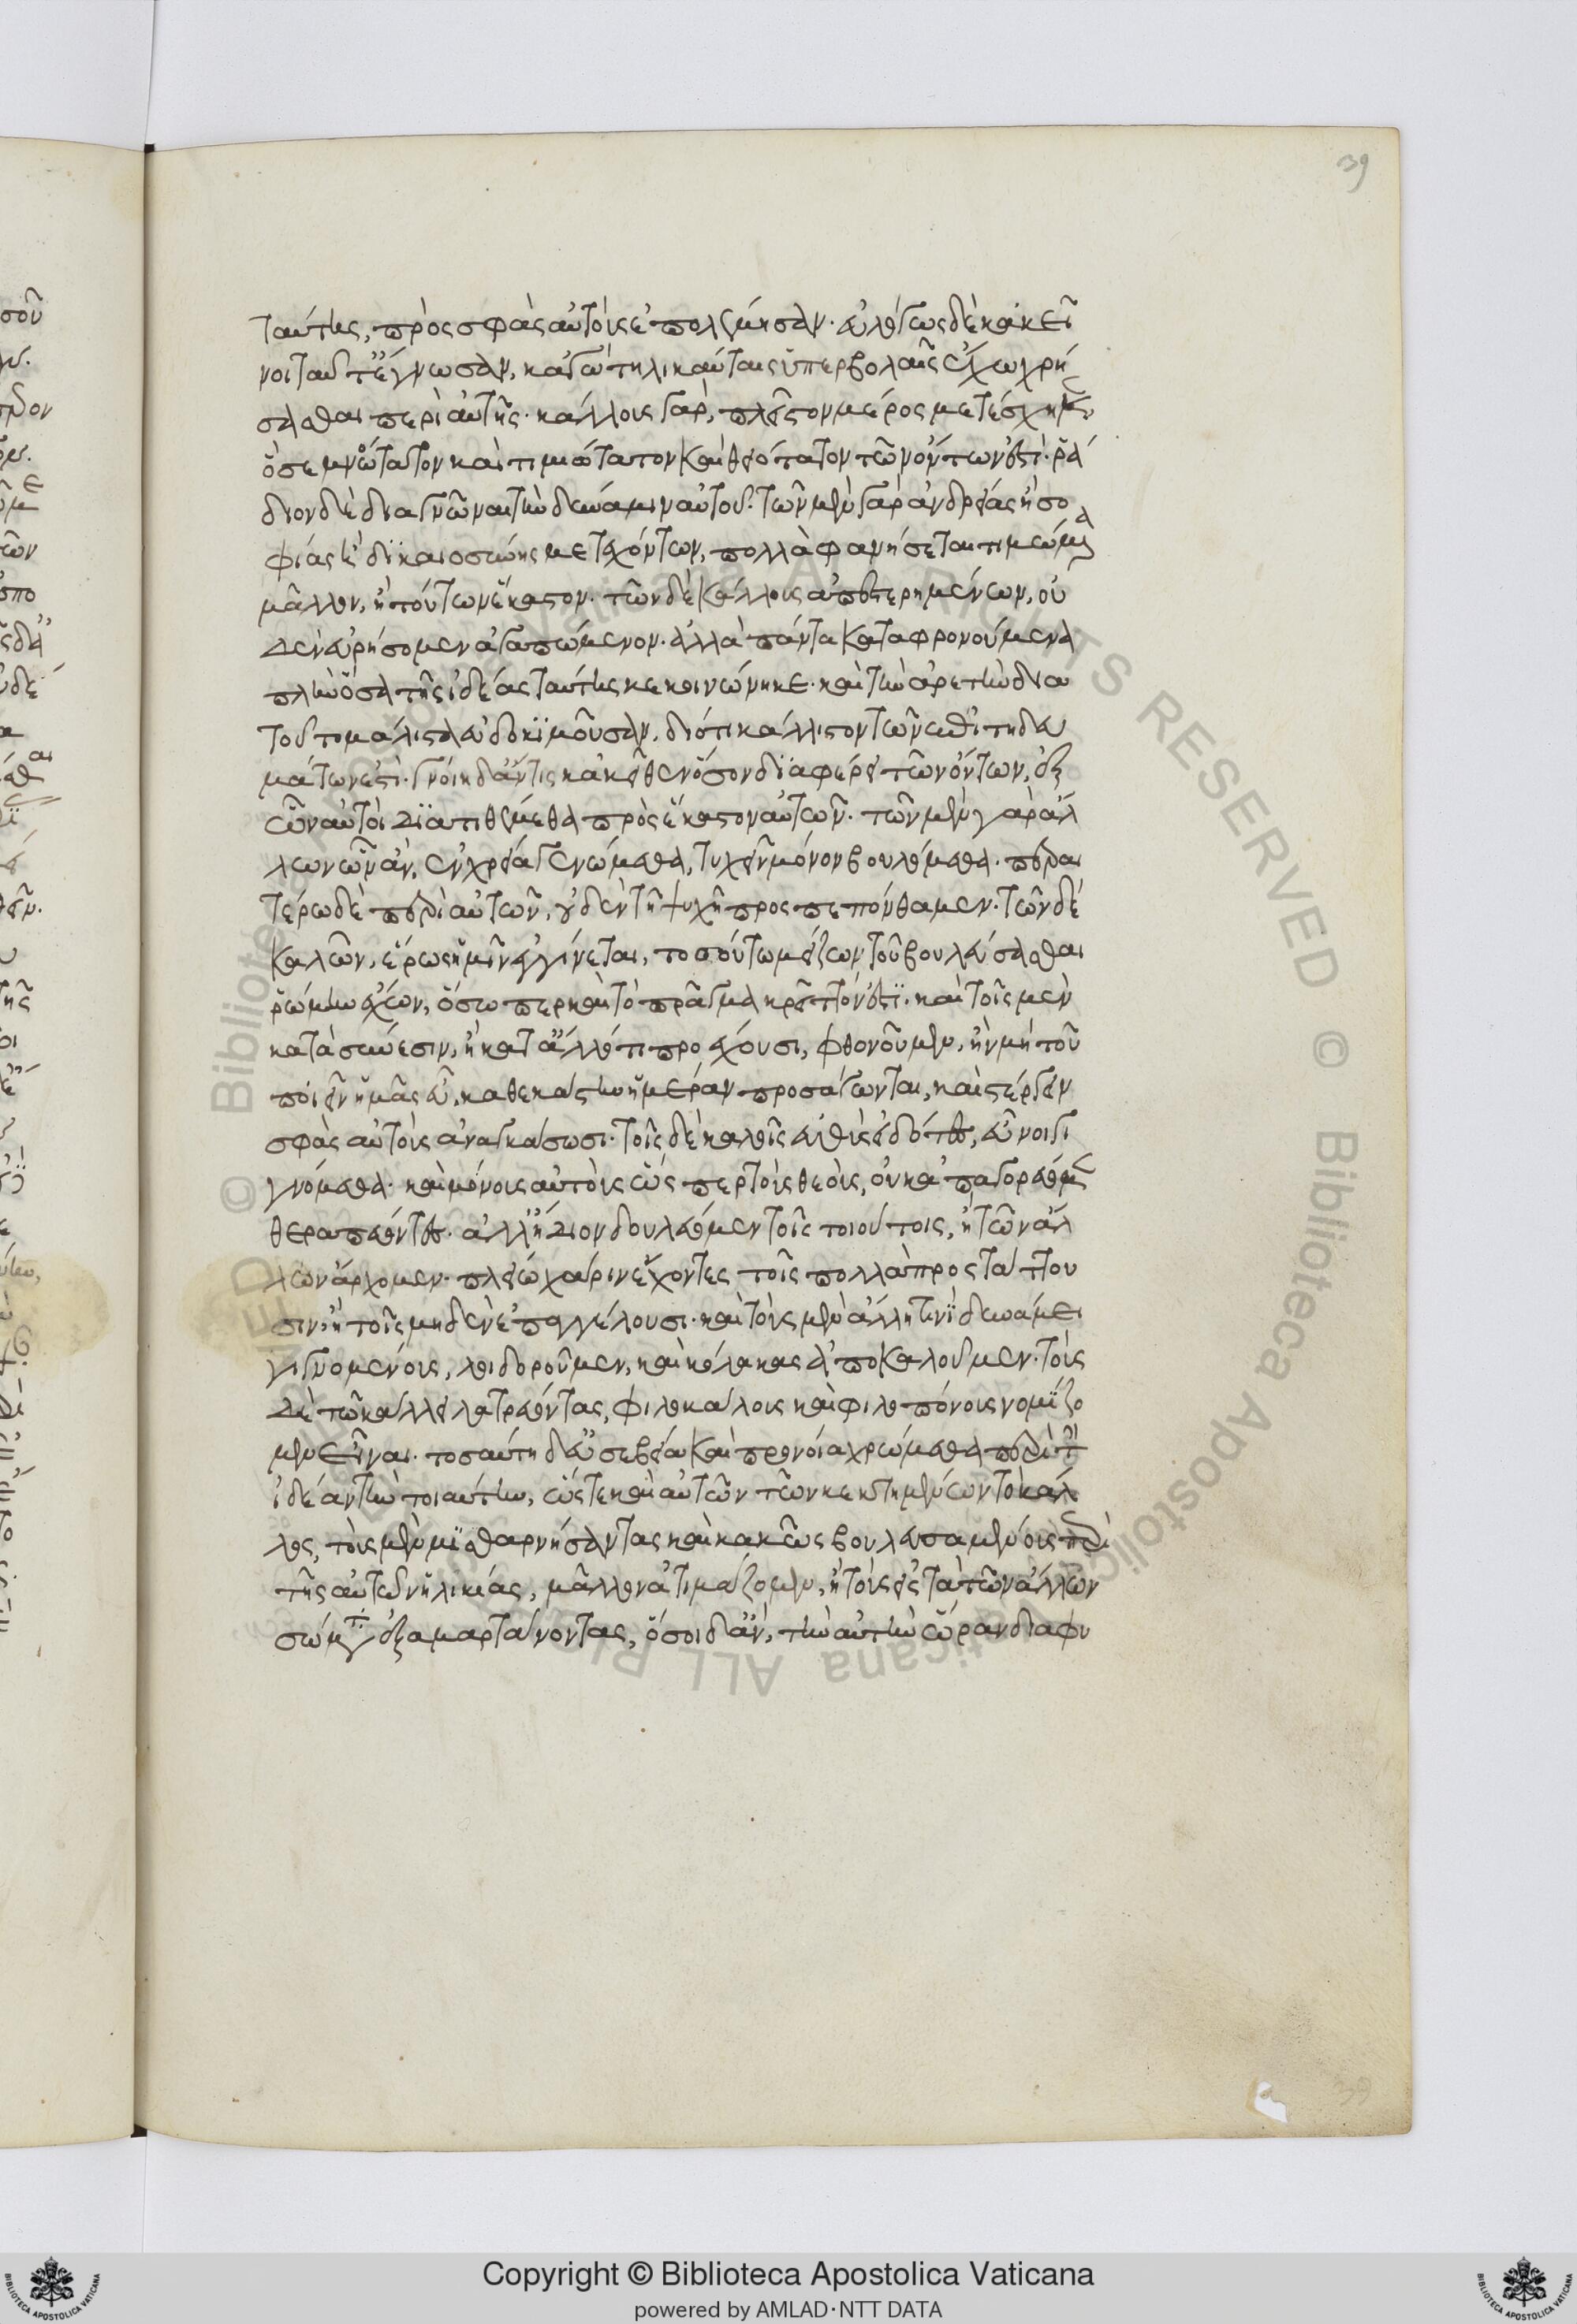 ταύτης, πρὸς σφᾶς αὐτοὺς ἐπολέμησαν· εὐλόγως δὲ κἀκεῖ
νοι ταῦτ᾽ ἔγνωσαν, κἀγὼ τηλικαύταις ὑπερβολαῖς ἔχω χρή
σασθαι περὶ αὐτῆς· κάλλους γὰρ, πλεῖστον μέρος μετέσχηκεν
ὃ σεμνότατον καὶ τιμιώτατον καὶ θειότατον τῶν ὄντων ἐστὶ· ῥά
διον δὲ διαγνῶναι τὴν δύναμιν αὐτοῦ· τῶν μὲν γὰρ ἀνδρείας ἢ σο
φίας ἢ δικαιοσύνης μετεχόντων, πολλὰ φανήσεται τιμώμενα
μᾶλλον, ἢ τούτων ἕκαστον· τῶν δὲ κάλλους ἀπεστερημένων, οὐ
δὲν εὑρήσομεν ἀγαπώμενον· ἀλλὰ πάντα καταφρονούμενα
πλὴν ὅσα τῆς ἰδέας ταύτης κεκοινώνηκε· καὶ τὴν ἀρετὴν δια
τοῦτο μάλιστα εὐδοκιμοῦσαν, διότι κάλλιστον τῶν ἐπιτηδευ
μάτων ἐστὶ· γνοίη δ᾽ ἄν τις κἀκεῖθεν ὅσον διαφέρει τῶν ὄντων, ἐξ
ὧν αὐτοὶ διατιθέμεθα πρὸς ἕκαστον αὐτῶν· τῶν μὲν γὰρ ἄλ
λων ὧν ἂν, ἐν χρείᾳ γενώμεθα, τυχεῖν μόνον βουλόμεθα· περαι
τέρω δὲ περὶ αὐτῶν, οὐδὲν τῇ ψυχῇ προσπεπόνθαμεν· τῶν δὲ
καλῶν, ἔρως ἡμῖν ἐγγίνεται, τοσούτω μείζων τοῦ βουλεύσασθαι
ῥώμην ἔχων, ὅσω περ καὶ τὸ πρᾶγμα κρεῖττόν ἐστι· καὶ τοῖς μὲν
κατὰ σύνεσιν, ἢ κατ᾽ ἄλλό τι προέχουσι, φθονοῦμεν, ἢν μὴ τοῦ
ποιεῖν ἡμᾶς εὖ, καθεκάστην ἡμέραν προσάγωνται, καὶ στέργειν
σφᾶς αὐτοὺς ἀναγκάσωσι· τοῖς δὲ καλοῖς εὐθὺς ἰδόντες, εὖνοι γι
γνόμεθα· καὶ μόνους αὐτοὺς ὥσπερ τοὺς θεοὺς, οὐκ ἀπαγορεύομεν
θεραπεύοντες· ἀλλ᾽ ἥδιον δουλεύομεν τοῖς τοιούτοις, ἢ τῶν ἄλ
λων ἄρχομεν· πλείω χάριν ἔχοντες τοῖς πολλὰ προστάττου
σιν, ἢ τοῖς μηδὲν ἐπαγγέλουσι· καὶ τοὺς μὲν ἄλλη τινὶ δυνάμει
γιγνομένους, λοιδοροῦμεν, καὶ κόλακας ἀποκαλοῦμεν· τοὺς
δὲ τῶ κάλλει λατρεύοντας, φιλοκάλους καὶ φιλοπόνους νομίζο
μεν εἶναι· τοσαύτη δ᾽ εὐσεβεία καὶ προνοία χρώμεθα περὶ τὴν
ἰδέαν τὴν τοιαύτην, ὥστε καὶ αὐτῶν τῶν κεκτημένων τὸ κάλ
λος, τοὺς μὲν μισθαρνήσαντας καὶ κακῶς βουλευσαμένους περὶ
τῆς αὑτῶν ἡλικίας, μᾶλλον ἀτιμάζομεν, ἢ τοὺς εἰς τὰ τῶν ἄλλων
σώματα ἐξαμαρτάνοντας, ὅσοι δ᾽ ἂν, τὴν αὑτῶν ὥραν διαφυ
39
Copyright © Biblioteca Apostolica Vaticana
powered by AMLAD·NTT DATA